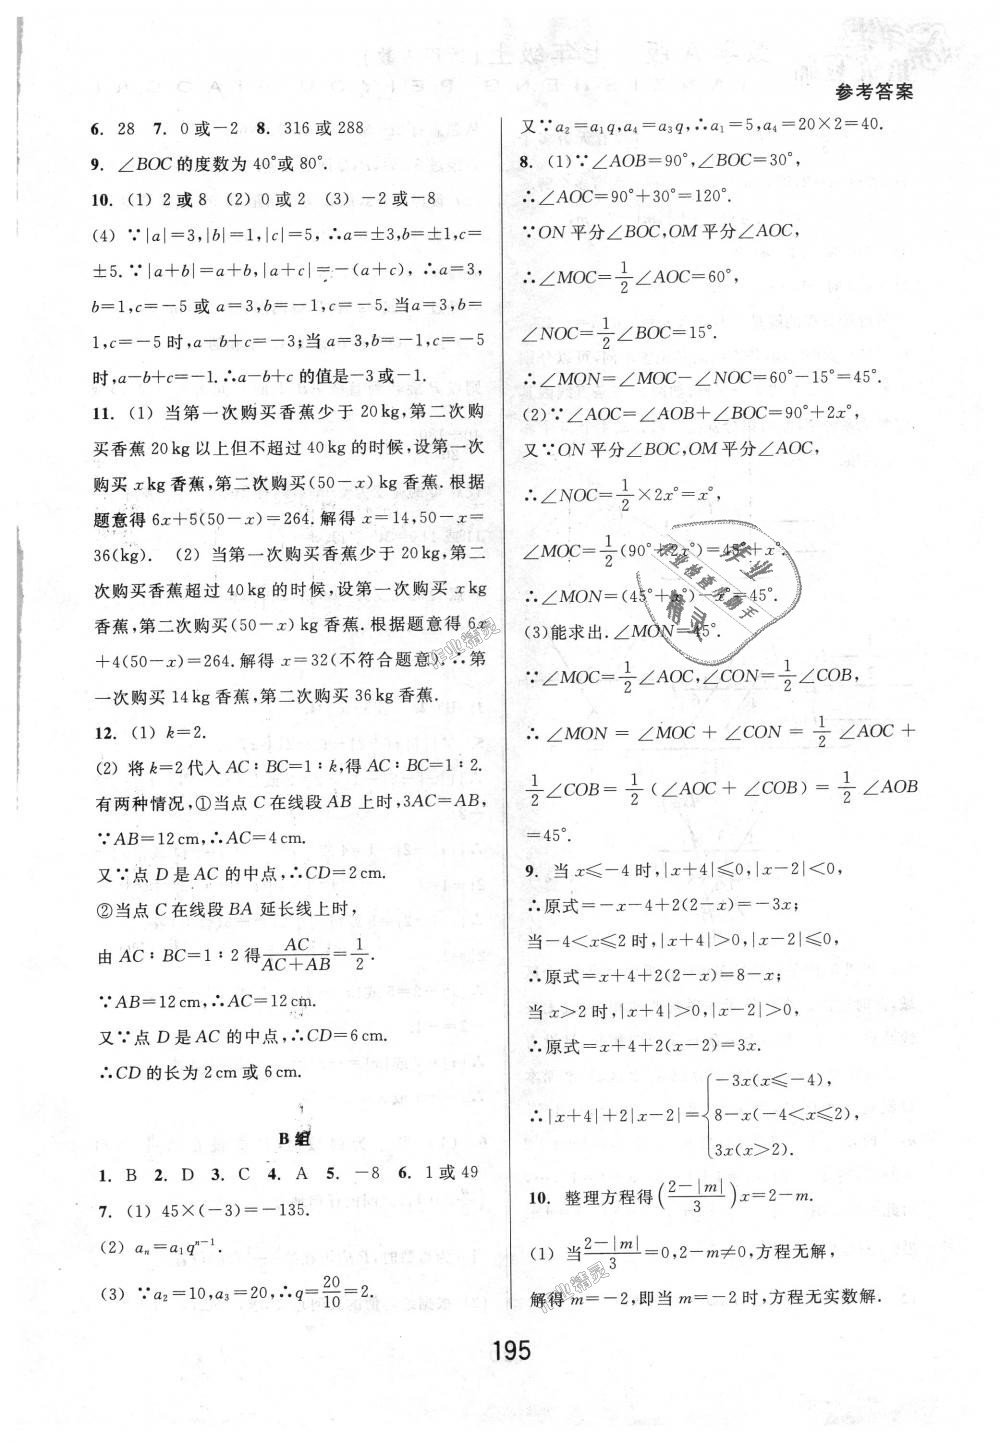 参考答案
6. 28 7. 0或-2 8. 316或288
9. ∠BOC的度数为40°或80°.
10. (1) 2或8 (2) 0或2 (3) -2或-8
(4) ∵|a|=3,|b|=1,|c|=5, ∴a=±3,b=±1,c=
±5. ∵|a+b|=a+b,|a+c|=-(a+c), ∴a=3,
b=1,c=-5 或 a=3,b=-1,c=-5. 当a=3,b=
1,c=-5时,a-b+c=-3;当a=3,b=-1,c=-5
时,a-b+c=-1.∴a-b+c的值是-3或-1.
11. (1) 当第一次购买香蕉少于20kg,第二次购
买香蕉20kg以上但不超过40kg的时候,设第一次
购买xkg香蕉,第二次购买(50-x)kg香蕉. 根据
题意得6x+5(50-x)=264.解得x=14,50-x=
36(kg). (2) 当第一次购买香蕉少于20kg,第二
次购买香蕉超过40kg的时候,设第一次购买xkg
香蕉,第二次购买(50-x)kg香蕉.根据题意得6x
+4(50-x)=264.解得x=32(不符合题意).∴第
一次购买14kg香蕉,第二次购买36kg香蕉.
12. (1) k=2.
(2) 将k=2代入AC∶BC=1∶k,得AC∶BC=1∶2.
有两种情况,①当点C在线段AB上时,3AC=AB,
∵AB=12cm,∴AC=4cm.
又∵点D是AC的中点,∴CD=2cm.
②当点C在线段BA延长线上时,
由AC∶BC=1∶2得AC/(AC+AB)=1/2.
∵AB=12cm,∴AC=12cm.
又∵点D是AC的中点,∴CD=6cm.
∴CD的长为2cm或6cm.
B组
1. B 2. D 3. C 4. A 5. -8 6. 1或49
7. (1) 45×(-3)=-135.
(2) aₙ=a₁qⁿ⁻¹.
(3) ∵a₂=10,a₃=20,∴q=20/10=2.
又∵a₂=a₁q,a₄=a₃q,∴a₁=5,a₄=20×2=40.
8. (1)∵∠AOB=90°,∠BOC=30°,
∴∠AOC=90°+30°=120°.
∵ON平分∠BOC,OM平分∠AOC,
∴∠MOC=1/2∠AOC=60°,
∠NOC=1/2∠BOC=15°.
∴∠MON=∠MOC-∠NOC=60°-15°=45°.
(2)∵∠AOC=∠AOB+∠BOC=90°+2x°,
又∵ON平分∠BOC,OM平分∠AOC,
∴∠NOC=1/2×2x°=x°,
∠MOC=1/2(90°+2x°)=45°+x°.
∴∠MON=(45°+x°)-x°=45°.
(3)能求出.∠MON=45°.
∵∠MOC=1/2∠AOC,∠CON=1/2∠COB,
∴∠MON=∠MOC+∠CON=1/2∠AOC+
1/2∠COB=1/2(∠AOC+∠COB)=1/2∠AOB
=45°.
9. 当x≤-4时,|x+4|≤0,|x-2|<0,
∴原式=-x-4+2(2-x)=-3x;
当-4<x≤2时,|x+4|>0,|x-2|≤0,
∴原式=x+4+2(2-x)=8-x;
当x>2时,|x+4|>0,|x-2|>0,
∴原式=x+4+2(x-2)=3x.
∴|x+4|+2|x-2|={-3x(x≤-4),
8-x(-4<x≤2),
3x(x>2).
10. 整理方程得((2-|m|)/3)x=2-m.
(1) 当(2-|m|)/3=0,2-m≠0,方程无解,
解得m=-2,即当m=-2时,方程无实数解.
作业
作业检查小助手
精灵
作业精灵
作业精灵
195